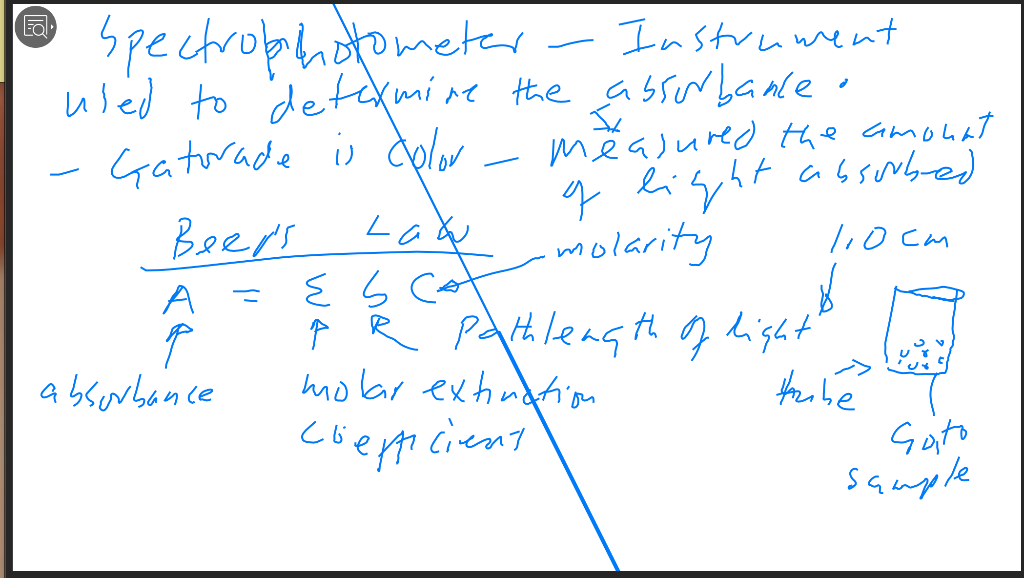 Spectrophotometer — Instrument
used to determine the absorbance.
— Gatorade is color — measured the amount
of light absorbed
Beer's Law
molarity
1.0 cm
A = ε b C
Pathlength of light
absorbance
molar extinction
coefficient
tube
Gato
sample